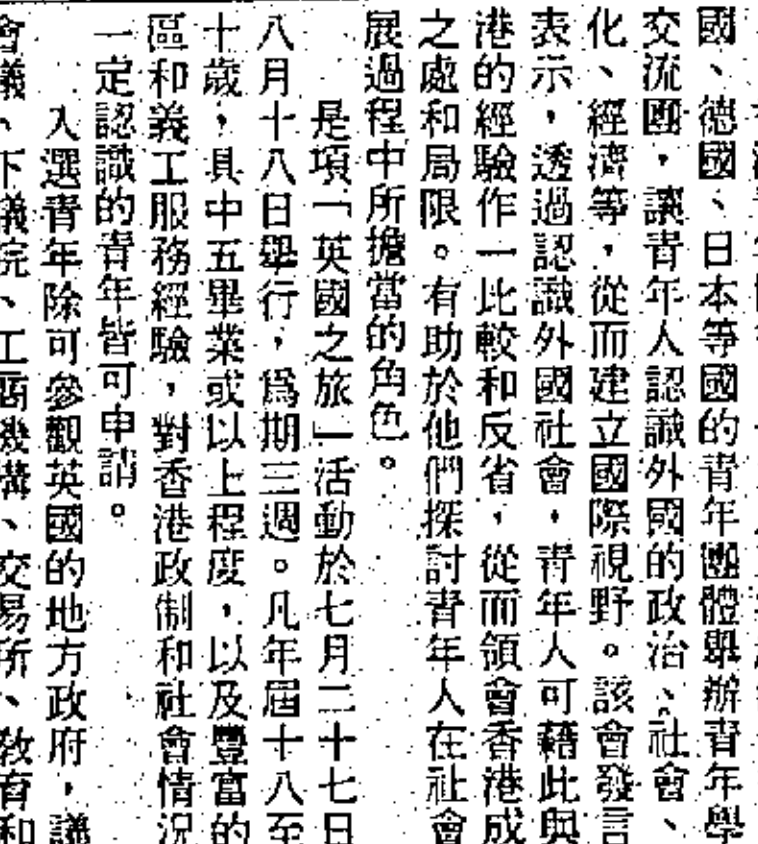 國、德國、日本等國的青年團體舉辦青年學
交流團，讓青年人認識外國的政治、社會、
化、經濟等，從而建立國際視野。該會發言
表示，透過認識外國社會，青年人可藉此與
港的經驗作一比較和反省，從而領會香港成
之處和局限。有助於他們探討青年人在社會
展過程中所擔當的角色。
是項「英國之旅」活動於七月二十七日
八月十八日舉行，爲期三週。凡年屆十八至
十歲，具中五畢業或以上程度，以及豐富的
區和義工服務經驗，對香港政制和社會情況
一定認識的青年皆可申請。
入選青年除可參觀英國的地方政府，議
會議、下議院、工商機構、交易所、教育和